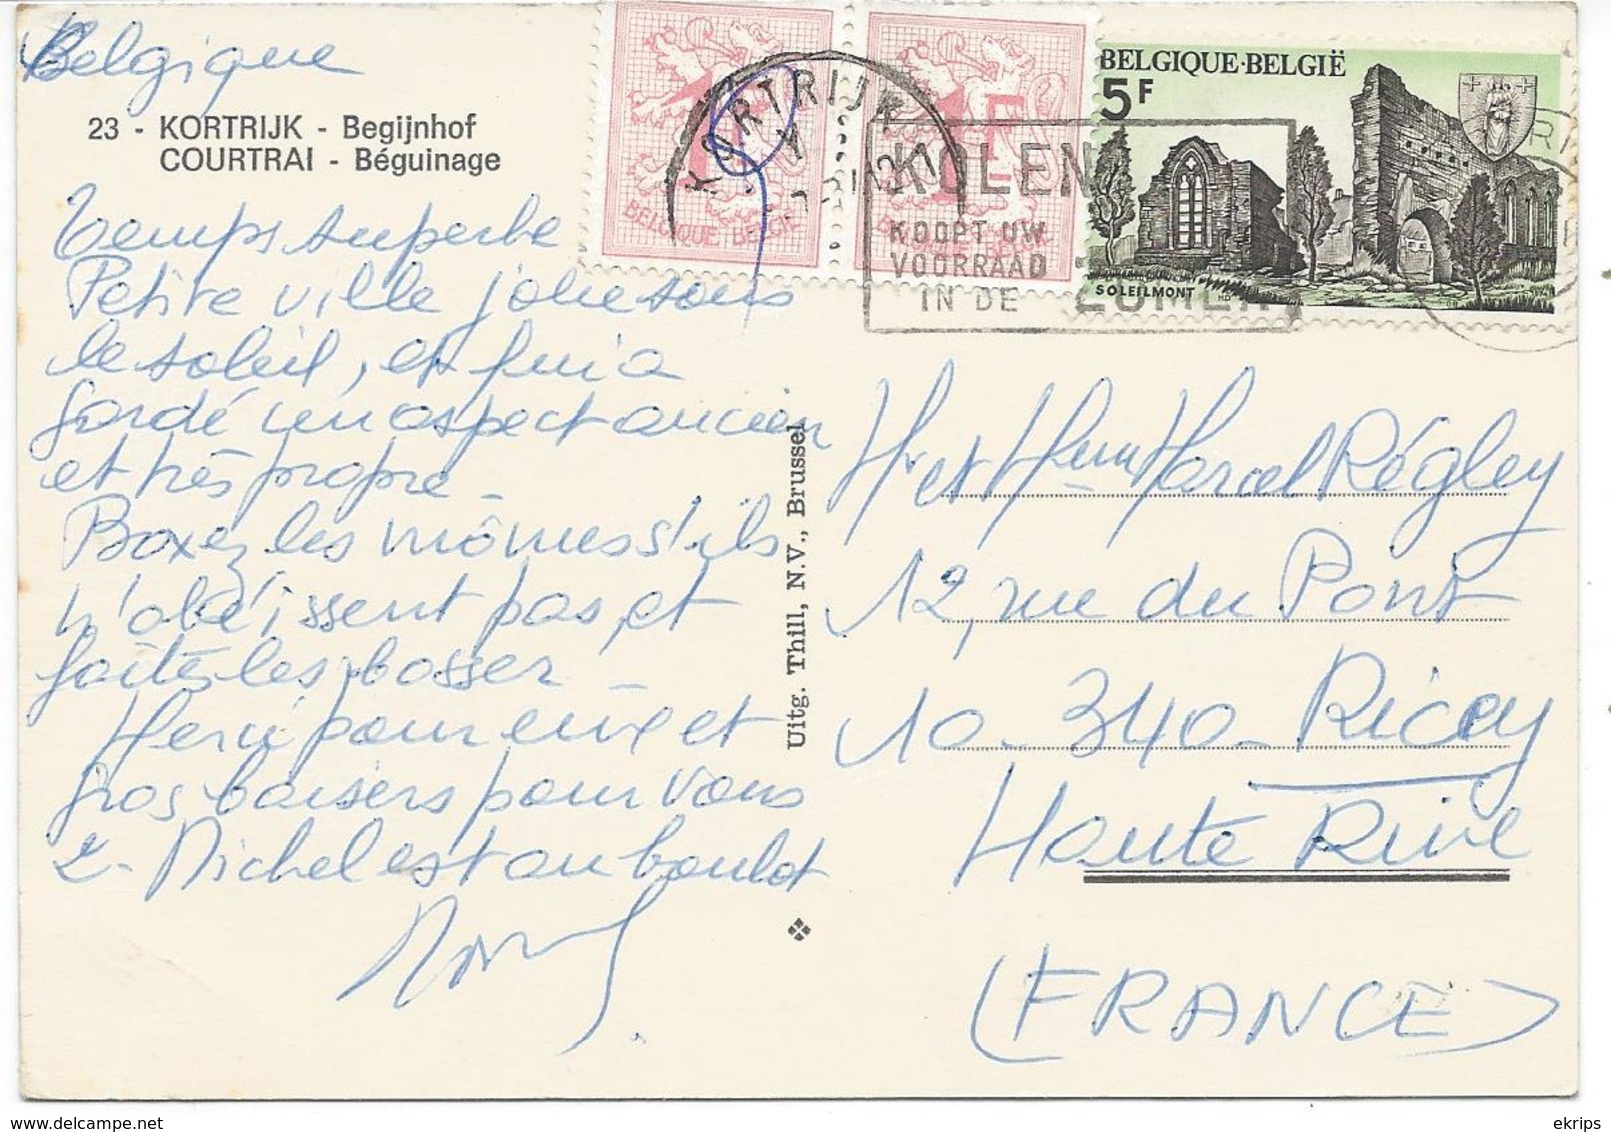 Belgique
23 - KORTRIJK - Begijnhof
COURTRAI - Béguinage
Temps superbe
Petite ville jolie sous
le soleil, et qui a
gardé un aspect ancien
et très propre -
Boxez les mômes s'ils
n'obéissent pas, et
faites les bosser -
Merci pour eux et
gros baisers pour vous
2 - Michel est au boulot
Uitg. Thill, N.V., Brussel
1F
BELGIQUE BELGIE
1F
BELGIQUE·BELGIË
5F
SOLEILMONT
KORTRIJK
KOLEN
KOOPT UW
VOORRAAD
IN DE ZOMER
Mr et Mme Marcel Régley
12, rue du Pont
10-340- Ricey
Haute Rive
(FRANCE)
ekrips